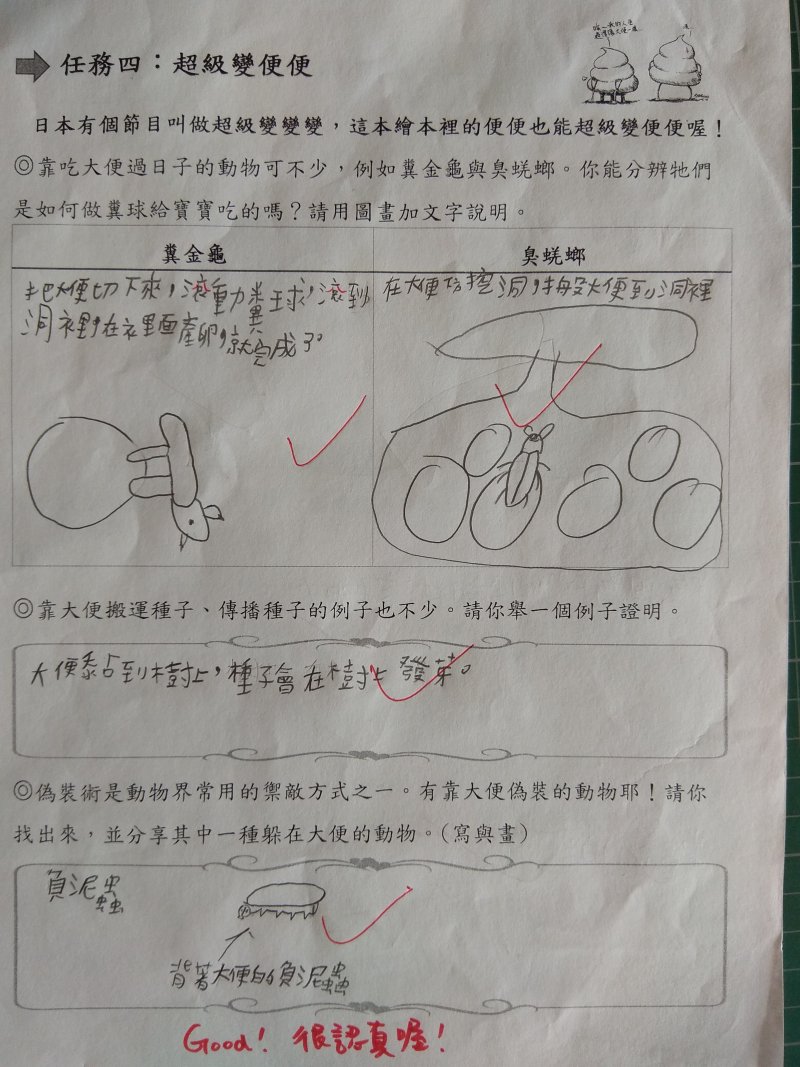 任務四：超級變便便
日本有個節目叫做超級變變變，這本繪本裡的便便也能超級變便便喔！
◎靠吃大便過日子的動物可不少，例如糞金龜與臭蜣螂。你能分辨牠們
是如何做糞球給寶寶吃的嗎？請用圖畫加文字說明。
糞金龜
把大便切下來，滾動糞球，滾到
洞裡，在裡面產卵，就完成了。
臭蜣螂
在大便旁挖洞，搬大便到洞裡
◎靠大便搬運種子、傳播種子的例子也不少。請你舉一個例子證明。
大便黏到樹上，種子會在樹上發芽。
◎偽裝術是動物界常用的禦敵方式之一。有靠大便偽裝的動物耶！請你
找出來，並分享其中一種躲在大便的動物。(寫與畫)
負泥蟲
背著大便的負泥蟲
Good! 很認真喔！